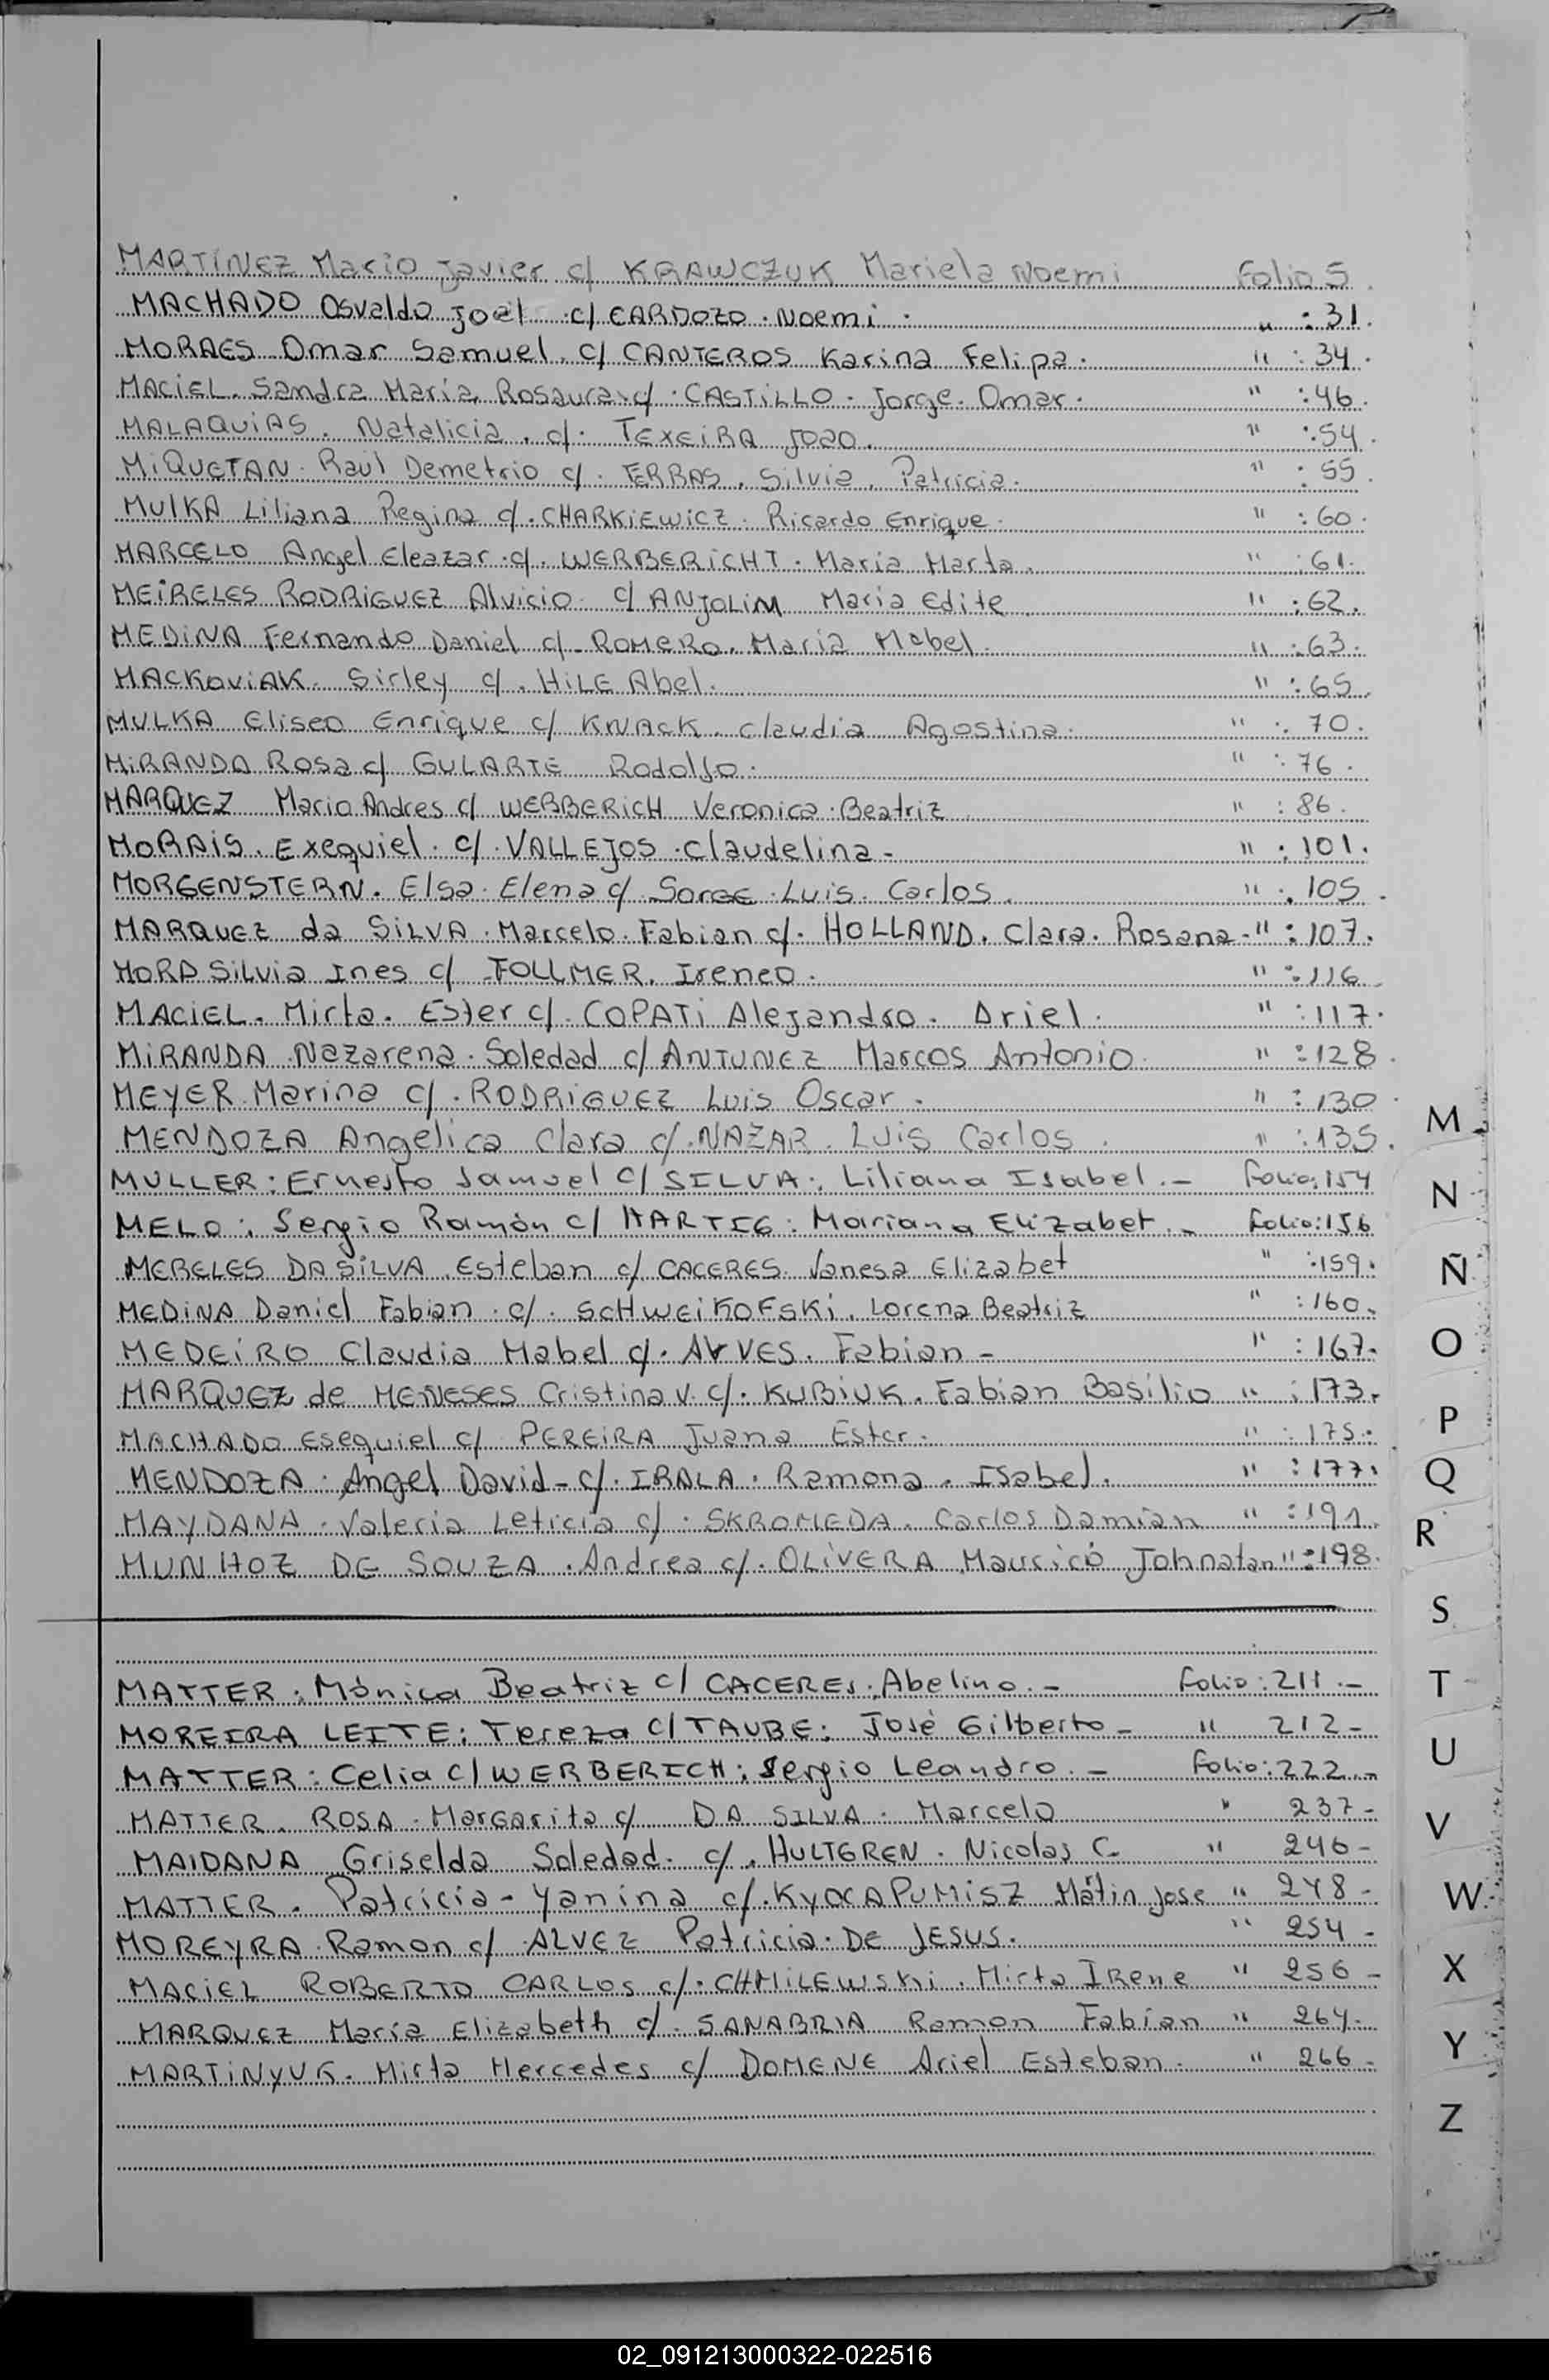 MARTINEZ Mario Javier c/ KRAWCZUK Mariela Noemi Folio 5
MACHADO Osvaldo Joel c/ CARDOZO . Noemi . " : 31.
MORAES Omar Samuel c/ CANTEROS Karina Felipa . " : 34.
MACIEL. Sandra Maria Rosaura c/ . CASTILLO . Jorge. Omar. " : 46.
MALAQUIAS. Natalicia. c/. TEXEIRA Joao. " : 54.
MiQUETAN. Raul Demetrio c/. TERRAS. Silvia. Patricia. " : 55.
MULKA Liliana Regina c/. CHARKiEWiCZ. Ricardo Enrique. " : 60.
MARCELO Angel Eleazar c/. WERBERiCHT. Maria Marta. " : 61.
MEiRELES RODRiGUEZ Alvicio c/ ANJOLiM Maria Edite " : 62.
MEDiNA Fernando Daniel c/. ROMERO. Maria Mabel. " : 63.
MACKOViAK. Sirley c/. HiLE Abel. " : 65.
MULKA Eliseo Enrique c/ KNACK. Claudia Agostina. " : 70.
MiRANDA Rosa c/ GULARTE Rodolfo. " : 76.
MARQUEZ Mario Andres c/ WERBERiCH Veronica. Beatriz " : 86.
MORAiS. Exequiel. c/. VALLEJOS. Claudelina - " : 101.
MORGENSTERN. Elsa. Elena c/. Sorge. Luis. Carlos. " : 105.
MARQUEZ da SiLVA. Marcelo. Fabian c/. HOLLAND. Clara. Rosana - " : 107.
MORA Silvia Ines c/ FOLLMER. Ireneo. " : 116
MACiEL. Mirta. Ester c/. COPATi Alejandro. Ariel. " : 117.
MiRANDA. Nazarena. Soledad c/ ANTUNEZ Marcos Antonio. " : 128.
MEYER Marina c/. RODRiGUEZ Luis Oscar. " : 130
MENDOZA Angélica Clara c/. NAZAR. Luis Carlos. " : 135.
MULLER: Ernesto Samuel c/ SILVA:. Liliana Isabel.- Folio:154
MELO: Sergio Ramón c/ HARTIG: Mariana Elizabet.- Folio:156
MERELES DA SiLVA. Esteban c/ CACERES. Vanesa Elizabet " : 159.
MEDiNA Daniel Fabian. c/. SCHWEiKOFSKi. Lorena Beatriz " : 160.
MEDEiRO Claudia Mabel c/. ALVES. Fabian - " : 167.
MARQUEZ de MENESES Cristina V. c/. KUBiUK. Fabian Basilio " : 173.
MACHADO Esequiel c/ PEREiRA Juana Ester. " : 175.
MENDOZA. Angel David - c/. IRALA. Ramona. Isabel. " : 177.
MAYDANA. Valeria Leticia c/. SKROMEDA. Carlos Damián " : 191.
MUNHOZ DE SOUZA. Andrea c/. OLiVERA Mauricio Johnatan " : 198.
MATTER: Mónica Beatriz c/ CACERES: Abelino.- Folio: 211.-
MOREIRA LEITE: Tereza c/ TAUBE: José Gilberto - " 212-
MATTER: Celia c/ WERBERICH: Sergio Leandro.- Folio:222.-
MATTER. ROSA. Margarita c/ DA SILVA. Marcelo " 237-
MAIDANA Griselda Soledad. c/. HULTGREN. Nicolas C. " 246-
MATTER. Patricia - Yanina c/. KYOCAPUMiSZ Mátin Jose " 248-
MOREYRA. Ramon c/. ALVEZ Patricia. DE JESUS. " 254-
MACiEL ROBERTO CARLOS c/. CHMiLEWSKi. Mirta IRene " 256-
MARQUEZ Maria Elizabeth c/. SANABRIA Ramon Fabian " 264-
MARTiNYUK. Mirta Mercedes c/ DOMENE Ariel Esteban. " 266-
M
N
Ñ
O
P
Q
R
S
T
U
V
W
X
Y
Z
02_091213000322-022516